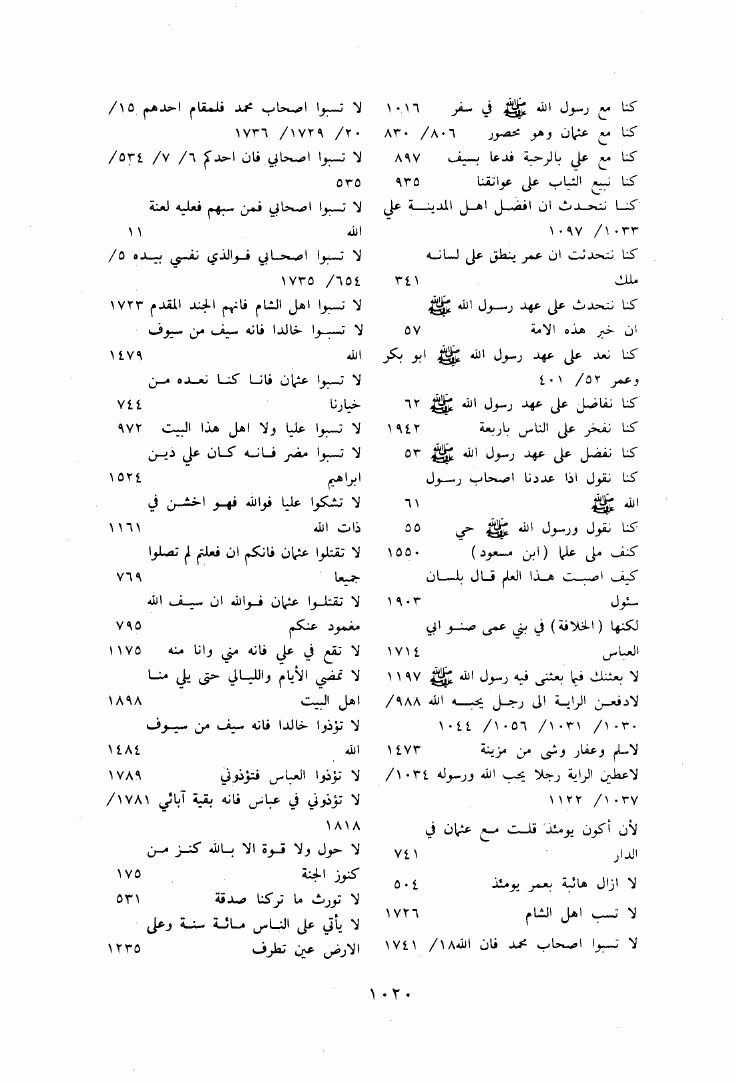 كنا مع رسول الله ﷺ في سفر ١٠١٦
كنا مع عثمان وهو محصور ٨٠٦/ ٨٣٠
كنا مع علي بالرحبة فدعا بسيف ٨٩٧
كنا نبيع الثياب على عواتقنا ٩٣٥
كنا نتحدث ان افضل اهل المدينة علي
١٠٣٣/ ١٠٩٧
كنا نتحدثت ان عمر ينطق على لسانه
ملك ٣٤١
كنا نتحدث على عهد رسول الله ﷺ
ان خير هذه الامة ٥٧
كنا نعد على عهد رسول الله ﷺ ابو بكر
وعمر ٥٢/ ٤٠١
كنا نفاضل على عهد رسول الله ﷺ ٦٢
كنا نفخر على الناس باربعة ١٩٤٢
كنا نفضل على عهد رسول الله ﷺ ٥٣
كنا نقول اذا عددنا اصحاب رسول
الله ﷺ ٦١
كنا نقول ورسول الله ﷺ حي ٥٥
كنف ملى علما (ابن مسعود) ١٥٥٠
كيف اصبت هذا العلم قال بلسان
سئول ١٩٠٣
لكنها (الخلافة) في بني عمى صنو ابي
العباس ١٧١٤
لا بعثنك فيما بعثنى فيه رسول الله ﷺ ١١٩٧
لادفعن الراية الى رجل يحبه الله ٩٨٨/
١٠٣٠/ ١٠٣١/ ١٠٥٦/ ١٠٤٤
لاسلم وغفار وشى من مزينة ١٤٧٣
لاعطين الراية رجلا يحب الله ورسوله ١٠٣٤/
١٠٣٧/ ١١٢٢
لأن أكون يومئذ قلت مع عثمان في
الدار ٧٤١
لا ازال هائبة بعمر يومئذ ٥٠٤
لا تسب اهل الشام ١٧٢٦
لا تسبوا اصحاب محمد فان الله١٨/ ١٧٤١
لا تسبوا اصحاب محمد فلمقام احدهم ١٥/
٢٠/ ١٧٢٩/ ١٧٣٦
لا تسبوا اصحابي فان احدكم ٦/ ٧/ ٥٣٤/
٥٣٥
لا تسبوا اصحابي فمن سبهم فعليه لعنة
الله ١١
لا تسبوا اصحابي فوالذي نفسي بيده ٥/
٦٥٤/ ١٧٣٥
لا تسبوا اهل الشام فانهم الجند المقدم ١٧٢٣
لا تسبوا خالدا فانه سيف من سيوف
الله ١٤٧٩
لا تسبوا عثمان فانا كنا نعده من
خيارنا ٧٤٤
لا تسبوا عليا ولا اهل هذا البيت ٩٧٢
لا تسبوا مضر فانه كان علي دين
ابراهيم ١٥٢٤
لا تشكوا عليا فوالله فهو اخشن في
ذات الله ١١٦١
لا تقتلوا عثمان فانكم ان فعلتم لم تصلوا
جميعا ٧٦٩
لا تقتلوا عثمان فوالله ان سيف الله
مغمود عنكم ٧٩٥
لا تقع في علي فانه مني وانا منه ١١٧٥
لا تمضي الأيام والليالي حتى يلي منا
اهل البيت ١٨٩٨
لا تؤذوا خالدا فانه سيف من سيوف
الله ١٤٨٤
لا تؤذوا العباس فتؤذوني ١٧٨٩
لا تؤذوني في عباس فانه بقية آبائي ١٧٨١/
١٨١٨
لا حول ولا قوة الا بالله كنز من
كنوز الجنة ١٧٥
لا تورث ما تركنا صدقة ٥٣١
لا يأتي على الناس مائة سنة وعلى
الارض عين تطرف ١٢٣٥
١٠٢٠